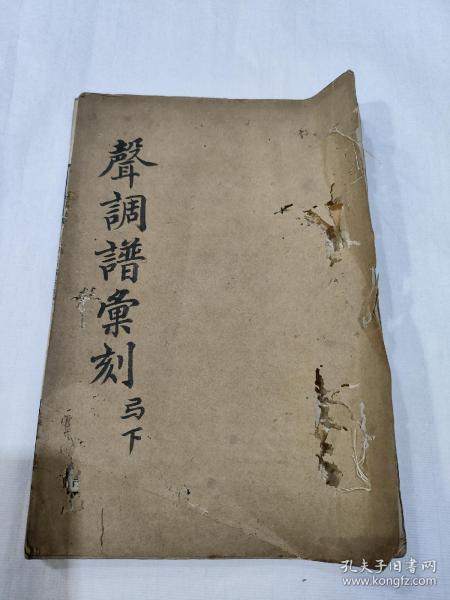 聲調譜彙刻
弓下
孔夫子旧书网
www.kongfz.com